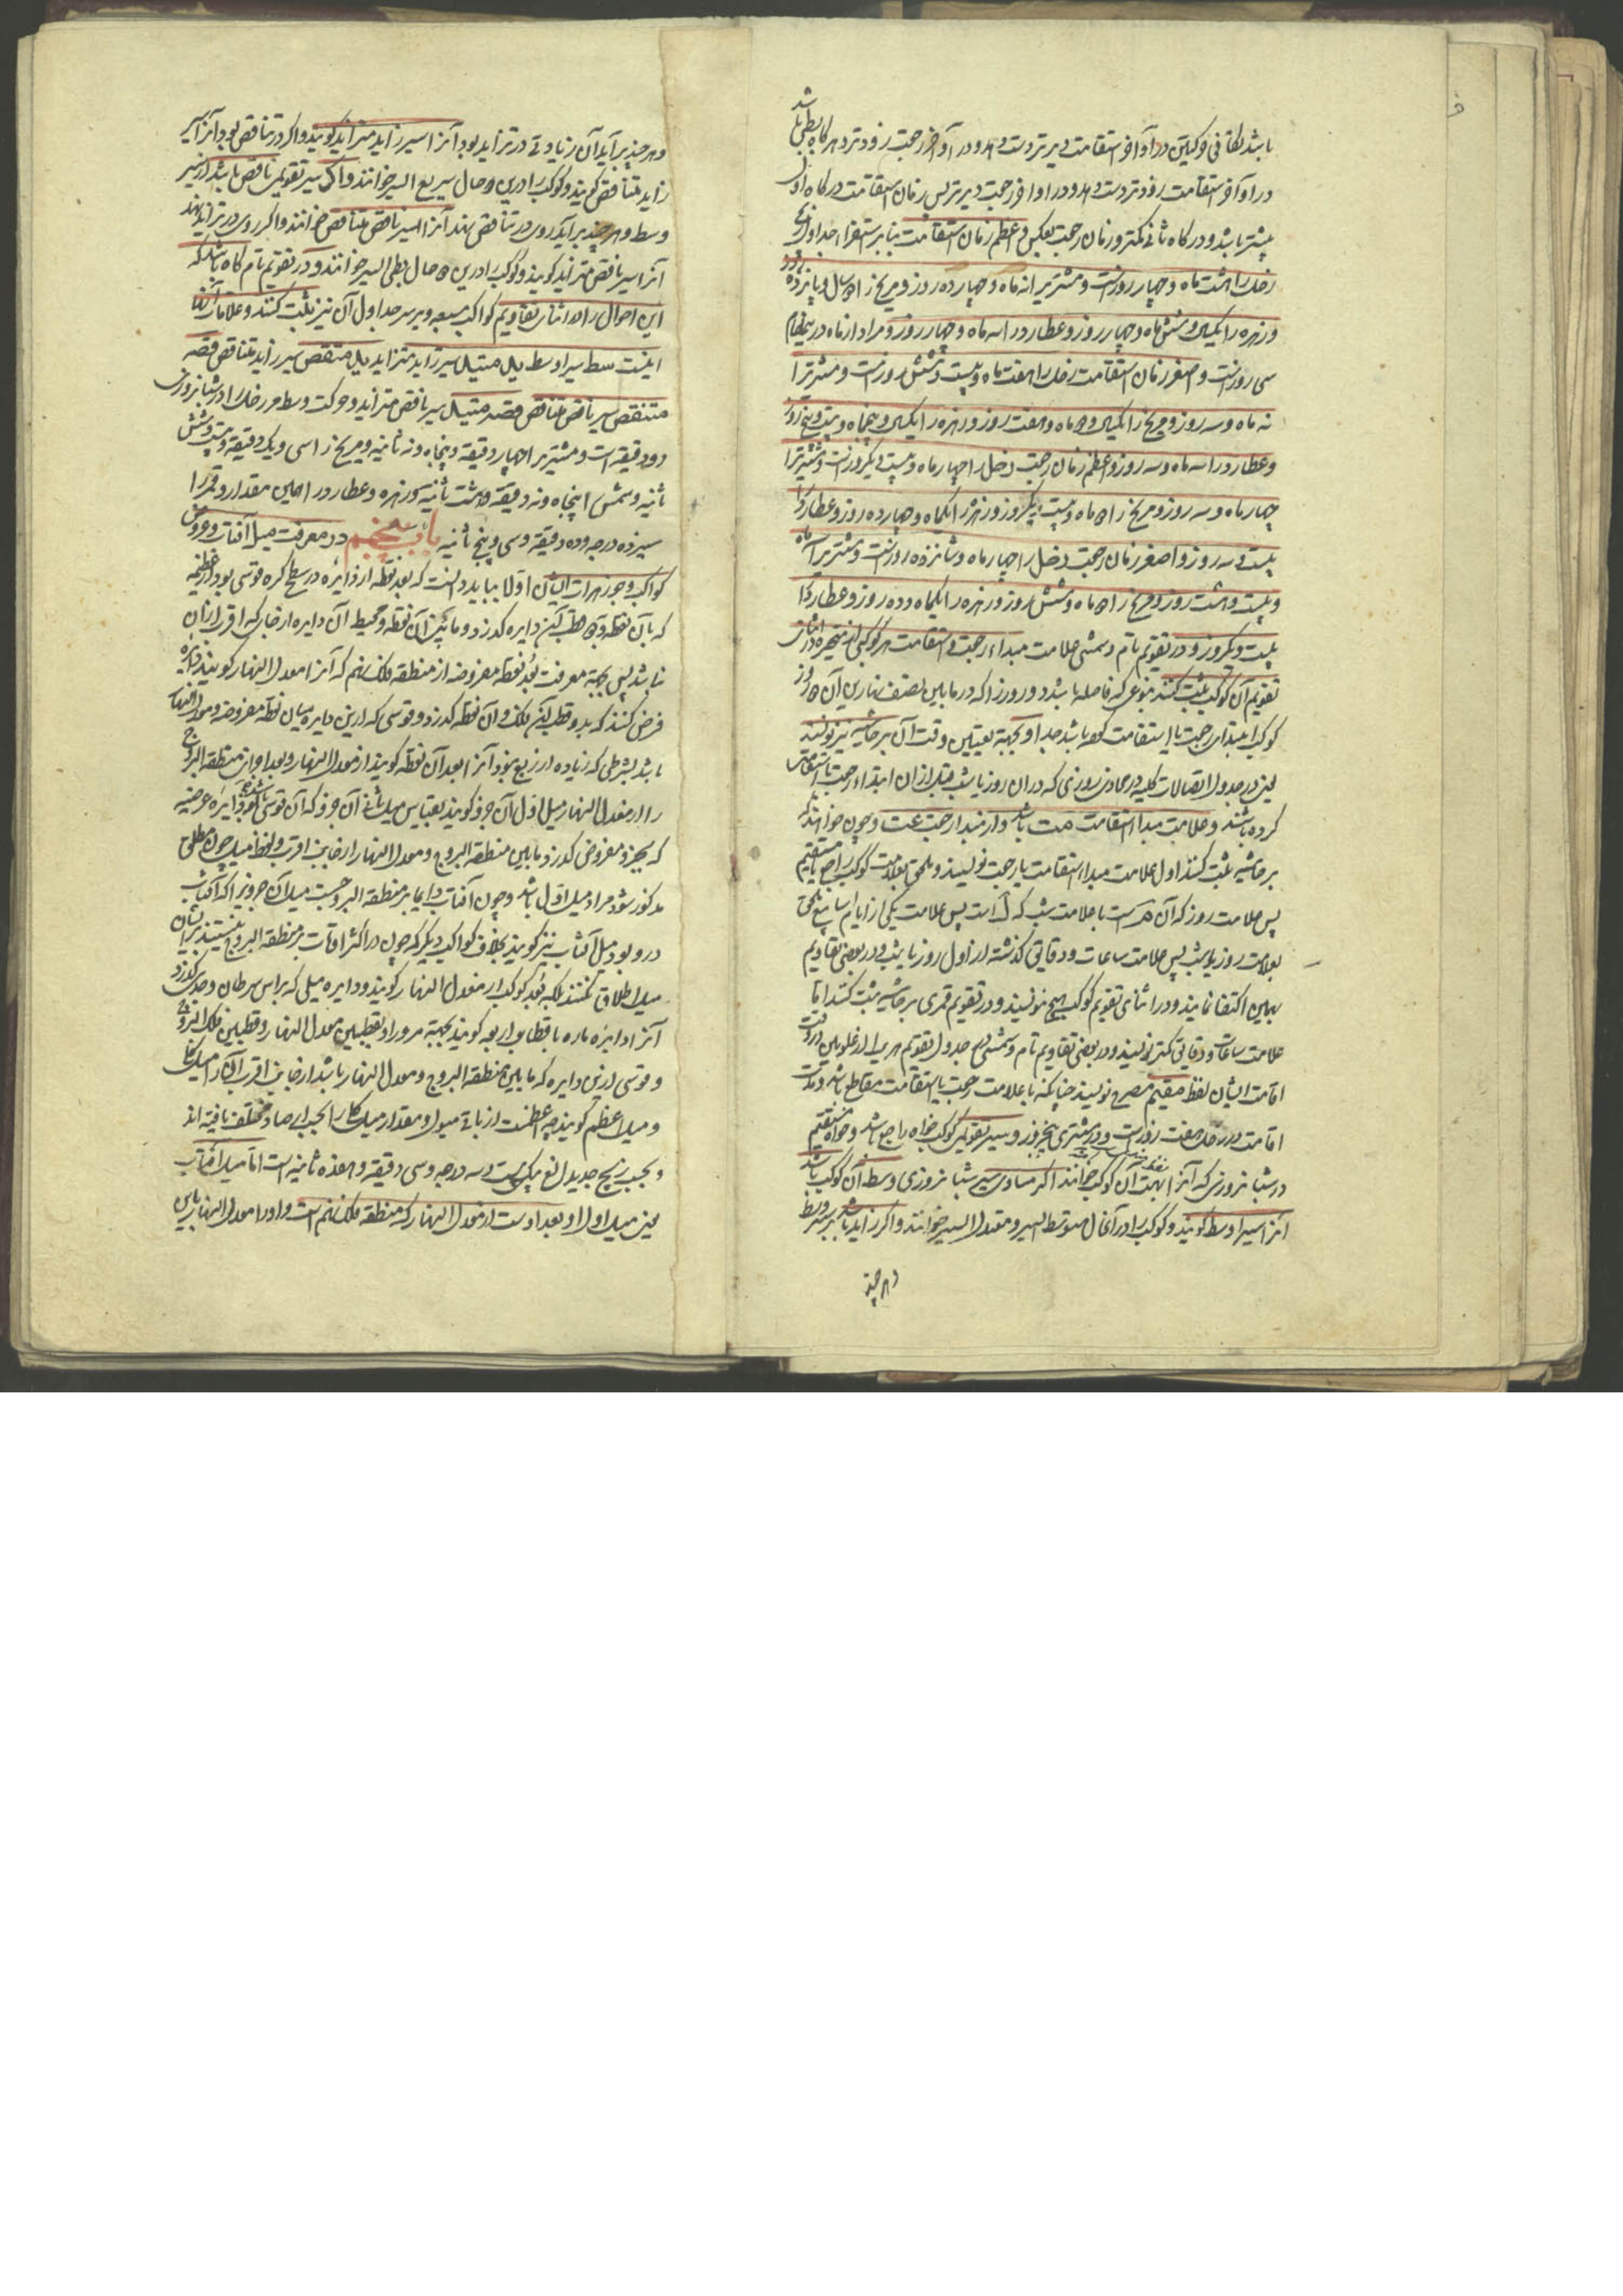 باشد تفاقی وکیلین در اواخر استقامت دیرتر دست دهد و در اواخر رجعت زودتر و هرگاه بطی باشد
در اواخر استقامت زودتر دست دهد و در اواخر رجعت دیرتر پس زمان استقامت در گاه اول
بیشتر باشد و در گاه ثانی کمتر و زمان رجعت بعکس و اعظم زمان استقامت بنا بر استقرا جداول
زحل را هشت ماه و چهار روزست و مشتری را نه ماه و چهارده روز و مریخ را سال و پانزده روز
و زهره را یکسال و شش ماه و چهار روز و عطارد را سه ماه و چهار روز و مراد از ماه درینمقام
سی روزست و اصغر زمان استقامت زحل را هفت ماه و بیست و شش روزست و مشتری را
نه ماه و سه روز و مریخ را یکسال و ماه و هفت روز و زهره را یکسال و پنجماه و بیست و پنج روز
و عطارد را سه ماه و سه روز و اعظم زمان رجعت زحل را چهار ماه و بیست و یکروزست و مشتری را
چهار ماه و سه روز و مریخ را ماه و بیست و یکروز و زهره را یکماه و چهارده روز و عطارد را
بیست و سه روز و اصغر زمان رجعت زحل را چهار ماه و شانزده روزست و مشتری را ماه
و بیست و هشت روز و مریخ را ماه و شش روز و زهره را یکماه و ده روز و عطارد را
بیست و یکروز و در تقویم تام و شمسی علامت مبداء رجعت و استقامت هر کوکبی از متحیره در اثنای
تقویم آن کوکب ثبت کنند بنوعی که فاصله باشد و روز را که در مابین نصف نهارین آن روز
کوکب را ابتدای رجعت یا استقامت باشد جدا و بجهة تعیین وقت آن بر حاشیه نیز نویسند
یعنی در جدول اتصالات کلیه در محاذی روزی که در آن روز یا شب قبل از آن ابتداء رجعت یا استقامت
کرده باشند و علامت مبداء استقامت مت باشد و از مبداء رجعت عت و چون خواهند که
بر حاشیه ثبت کنند اول علامت مبداء استقامت یا رجعت نویسند و ملحق بعلامت کوکب راجع یا مستقیم
پس علامت روز که آن ر است یا علامت شب که ل است پس علامت یکی از ایام سابع ملحق
بعلامت روز یا شب پس علامت ساعات و دقایق گذشته از اول روز یا شب و در بعضی تقاویم
بهمین اکتفا نمایند و در اثنای تقویم کوکب هیچ ننویسند و در تقویم قمری بر حاشیه ثبت کنند اما
علامت ساعات و دقایق کمتر نویسند و در بعضی تقاویم تام و شمسی در جدول تقویم هر یک از علویین در وقت
اقامت ایشان لفظ مقیم مصرح نویسند چنانکه با علامت رجعت یا استقامت مقاطع باشد و مدت
اقامت در زحل هفت روزست و در مشتری پنجروز و سیر تقویمی کوکب خواه راجع باشد و خواه مستقیم
در شبانروزی که آنرا بهت آن کوکب خوانند اگر مساوی سیر شبانروزی وسط آن کوکب باشد
آنرا سیر اوسط گویند و کوکب را در آنحال متوسط السیر و معتدل السیر خوانند و اگر زاید باشد بر سیر وسط
و هر چند
و هر چند بر آید آن زیادتی در تزاید بود آنرا سیر زاید متزاید گویند و اگر در تناقص بود آنرا سیر
زاید متناقص گویند و کوکب را درین حال سریع السیر خوانند و اگر سیر تقویمی ناقص باشد از سیر
وسط و هر چند بر آید روی در تناقص نهد آنرا سیر ناقص متناقص خوانند و اگر روی در تزاید نهد
آنرا سیر ناقص متزاید گویند و کوکب را درین حال بطی السیر خوانند و در تقویم تام گاه باشد که
این احوال را در اثنای تقاویم کواکب سبعه و بر سر جداول آن نیز ثبت کنند و علامات آنها
اینست سط سیر اوسط یل متیل سیر زاید متزاید یل متنقص سیر زاید متناقص قصه
متنقص سیر ناقص متناقص قصه متیل سیر ناقص متزاید و حرکت وسط مر زحل را در شبانروزی
دو دقیقه است و مشتری را چهار دقیقه و پنجاه و نه ثانیه و مریخ را سی و یک دقیقه و بیست و شش
ثانیه و شمس را پنجاه و نه دقیقه و هشت ثانیه و زهره و عطارد را همین مقدار و قمر را
سیزده درجه و ده دقیقه و سی و پنج ثانیه باب پنجم در معرفت میل آفتاب و عروض
کواکب و جوزهرات ایشان اولا بباید دانست که بعد نقطه از دایره در سطح کره قوسی بود از عظیمه
که بآن نقطه و قطبین دایره گذرد و مابین آن نقطه و محیط آن دایره از جانب که اقرب از آن
نباشد پس بجهة معرفت بعد نقطه مفروضه از منطقه فلک نهم که آنرا معدل النهار گویند دایره
فرض کنند که بدو قطب این فلک و آن نقطه گذرد و قوسی که ازین دایره میان نقطه مفروضه و معدل النهار
باشد بشرطی که زیاده از ربع نبود آنرا بعد آن نقطه گویند از معدل النهار و بعد اجزای منطقه البروج
را از معدل النهار میل اول آن جزو گویند بقیاس میل ثانی آن جزو که آن قوسی باشد از دایره عرضیه
که بجزو مفروض گذرد و مابین منطقه البروج و معدل النهار از جانب اقرب و لفظ میل چون مطلق
مذکور شود مراد میل اول باشد و چون آفتاب دایما بر منطقه البروجست میل آن جزو را که آفتاب
درو بود میل آفتاب نیز گویند بخلاف کواکب دیگر که چون در اکثر اوقات بر منطقه البروج نیستند بر ایشان
میل اطلاق نکنند بلکه بعد کوکب از معدل النهار گویند و دایره میلی که براس سرطان و جدی گذرد
آنرا دایره ماره باقطاب اربعه گویند بجهة مرور او بقطبین معدل النهار و قطبین فلک البروج
و قوسی ازین دایره که مابین منطقه البروج و معدل النهار باشد از جانب اقرب آنرا میل کلی
و میل اعظم گویند چه اعظمست از باقی میول و مقدار میل کلی را بحسب ارصاد مختلف یافته اند
و بحسب زیج جدید الغ بیکی بیست و سه درجه و سی دقیقه و هفده ثانیه است اما میل آفتاب
یعنی میل اول او بعد اوست از معدل النهار که منطقه فلک نهم است و او را معدل النهار برای